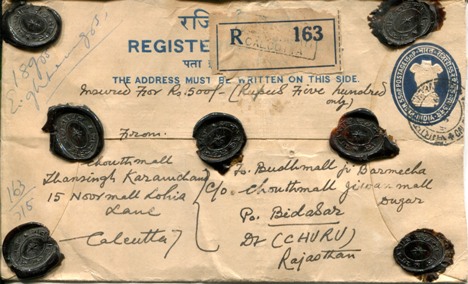 रजि
R CALCUTTA 163
REGISTERE
पता
THE ADDRESS MUST BE WRITTEN ON THIS SIDE.
Insured For Rs. 500/- (Rupees Five hundred
only)
From:
Chouthmall
Thansingh Karamchand
15 Noormall Lohia
Lane
Calcutta 7
To Budhmall Ji Barmecha
C/o Chouthmall Jiwanmall
Dugar
Po. Bidasar
Dt (CHURU)
Rajasthan
163
715